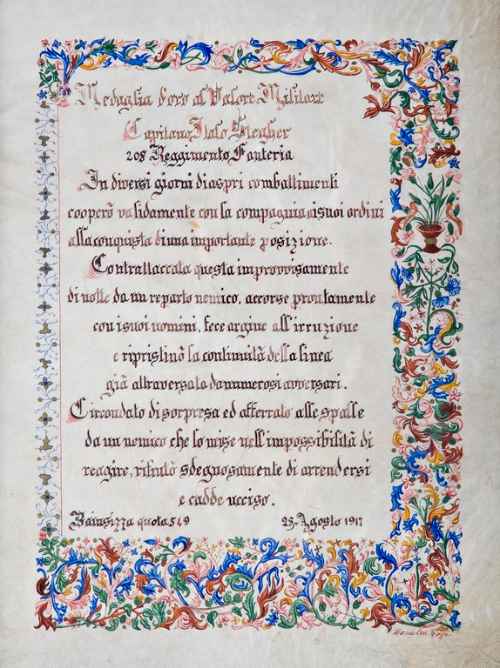 Medaglia d'oro al Valore Militare
Capitano Italo Stegher
208 Reggimento Fanteria
In diversi giorni di aspri combattimenti
cooperò validamente con la compagnia ai suoi ordini
alla conquista di una importante posizione.
Contrattaccata questa improvvisamente
di notte da un reparto nemico, accorse prontamente
con i suoi uomini, fece argine all'irruzione
e ripristinò la continuità della linea
già attraversata da numerosi avversari.
Circondato di sorpresa ed afferrato alle spalle
da un nemico che lo mise nell'impossibilità di
reagire, rifiutò sdegnosamente di arrendersi
e cadde ucciso.
Bainsizza quota 549 23-Agosto 1917